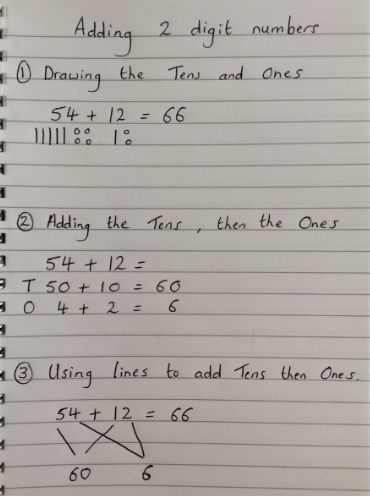 Adding 2 digit numbers
① Drawing the Tens and Ones
54 + 12 = 66
② Adding the Tens, then the Ones
54 + 12 =
T 50 + 10 = 60
O 4 + 2 = 6
③ Using lines to add Tens then Ones.
54 + 12 = 66
60 6